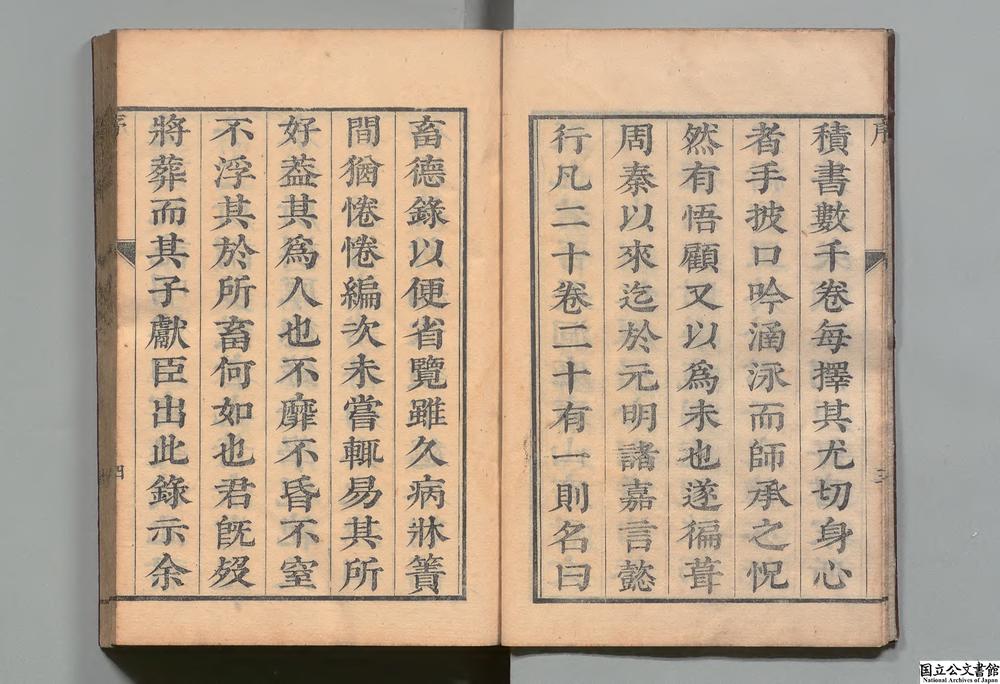 積書數千卷每擇其尤切身心
者手披口吟涵泳而師承之怳
然有悟顧又以爲未也遂徧葺
周秦以來迄於元明諸嘉言懿
行凡二十卷二十有一則名曰
畜德錄以便省覽雖久病牀簀
間猶惓惓編次未嘗輒易其所
好葢其爲人也不靡不昏不窒
不浮其於所畜何如也君旣歿
將葬而其子獻臣出此錄示余
四
国立公文書館
National Archives of Japan